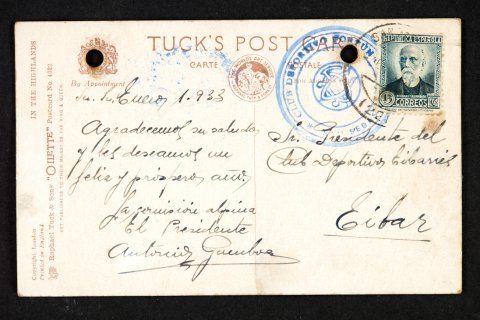 TUCK'S POST CARD
CARTE POSTALE
By Appointment
IN THE HIGHLANDS
Raphael Tuck & Sons' "OILETTE" Postcard No. 4023
ART PUBLISHERS TO THEIR MAJESTIES THE KING & QUEEN
Copyright London
Printed in England
CLUB DEPORTIVO FORTUNA
REPUBLICA ESPAÑOLA
15 CORREOS
Enero 1. 933
Agradecemos su saludo
y les deseamos un
feliz y próspero año.
La comisión alpina
El Presidente
Antonio
Sr. Presidente del
Club Deportivo Eibarrés
Eibar